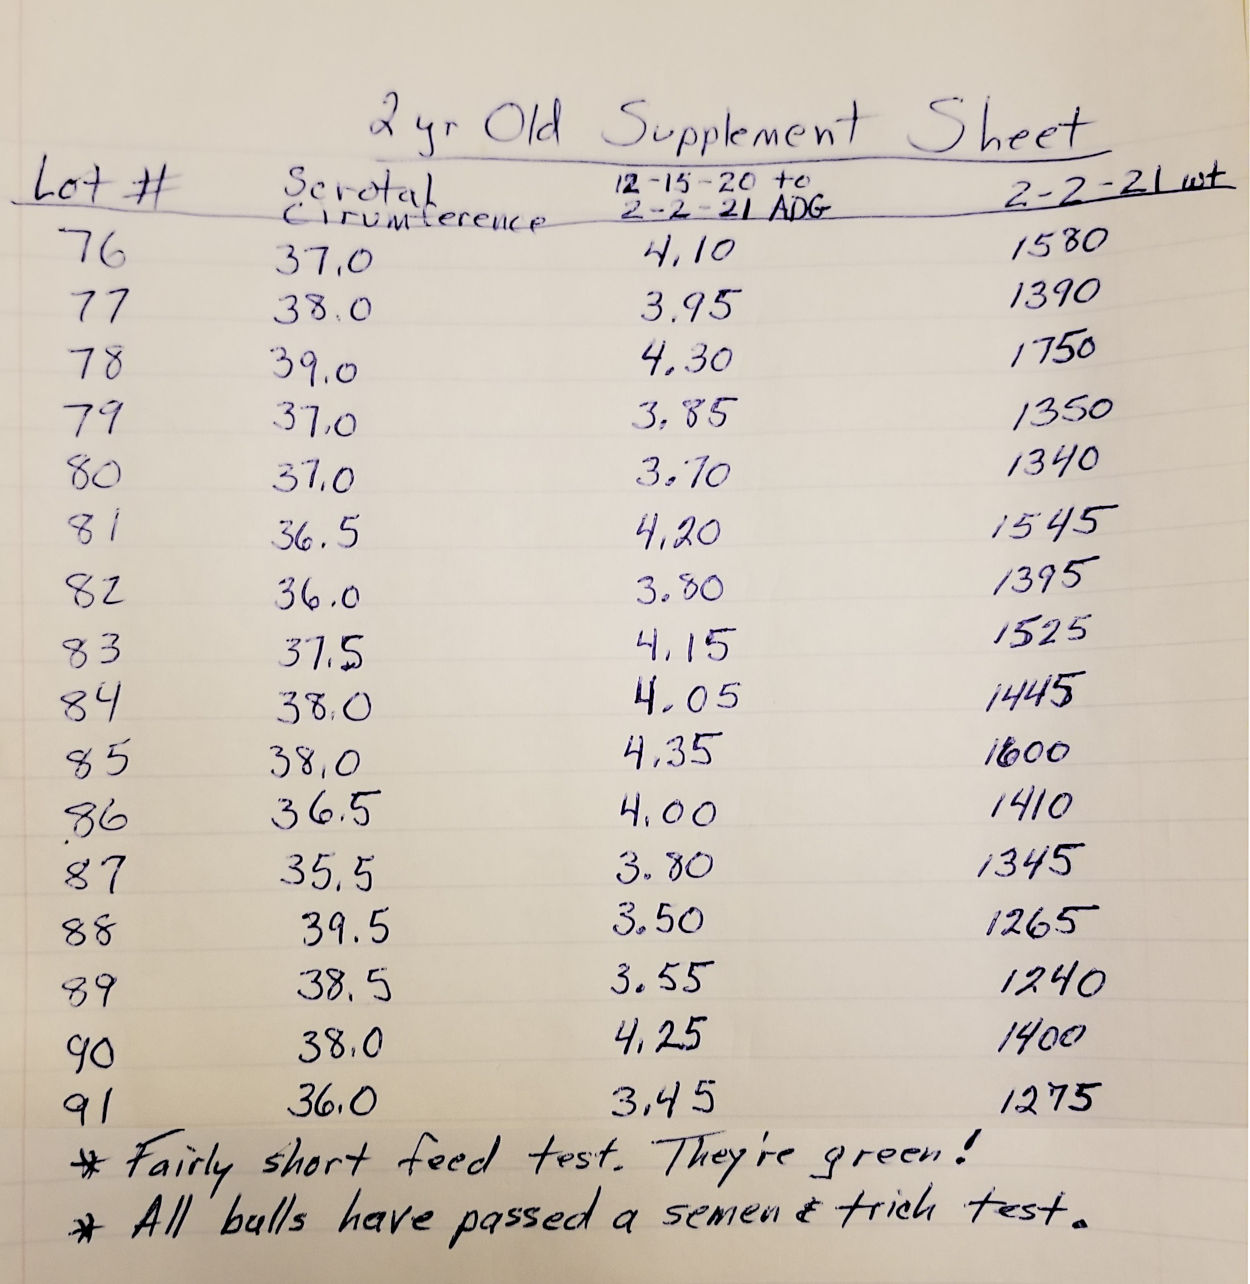 2 yr Old Supplement Sheet
Lot # Scrotal Cirumference 12-15-20 to 2-2-21 ADG 2-2-21 wt
76 37.0 4.10 1580
77 38.0 3.95 1390
78 39.0 4.30 1750
79 37.0 3.85 1350
80 37.0 3.70 1340
81 36.5 4.20 1545
82 36.0 3.80 1395
83 37.5 4.15 1525
84 38.0 4.05 1445
85 38.0 4.35 1600
86 36.5 4.00 1410
87 35.5 3.80 1345
88 39.5 3.50 1265
89 38.5 3.55 1240
90 38.0 4.25 1400
91 36.0 3.45 1275
* Fairly short feed test. They're green!
* All bulls have passed a semen & trich test.